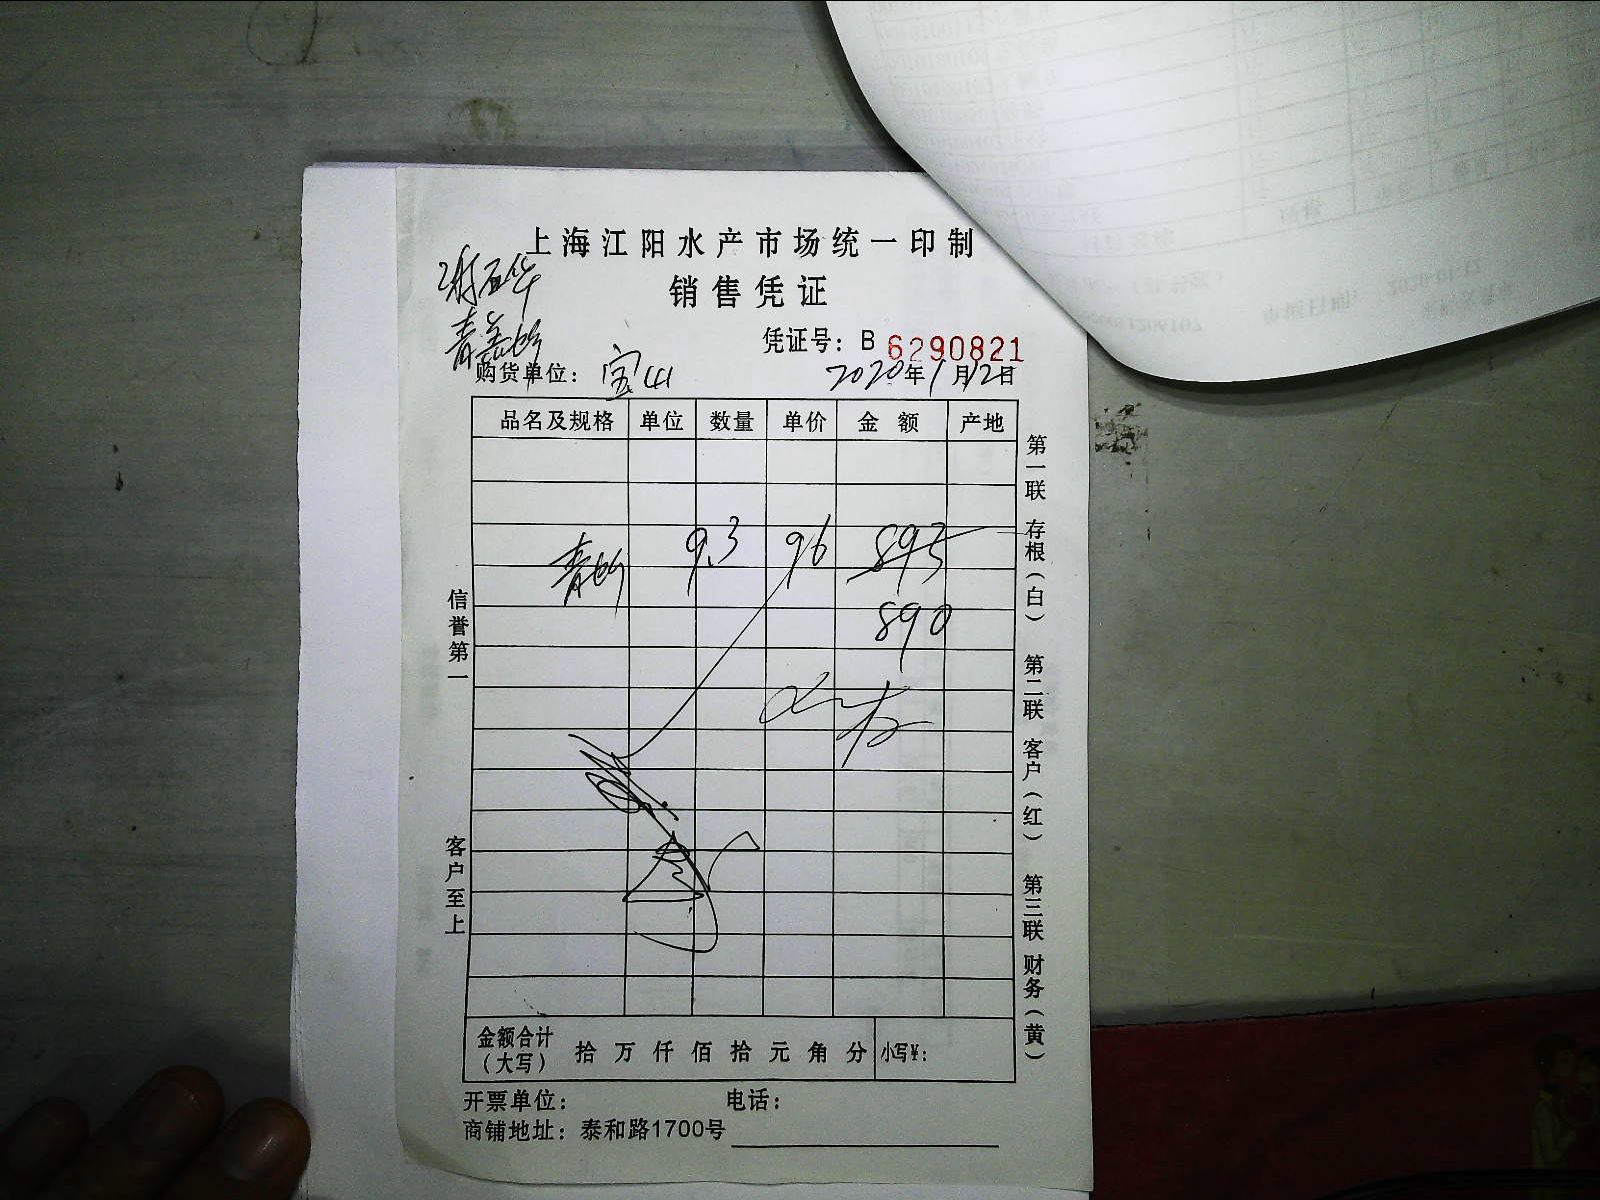 上海江阳水产市场统一印制
销售凭证
凭证号：B 6290821
购货单位：宝山 2020年1月12日
品名及规格 单位 数量 单价 金额 产地
9.3 96 893
890
信誉第一
客户至上
第一联 存根（白） 第二联 客户（红） 第三联 财务（黄）
金额合计（大写） 拾 万 仟 佰 拾 元 角 分 小写¥：
开票单位： 电话：
商铺地址：泰和路1700号